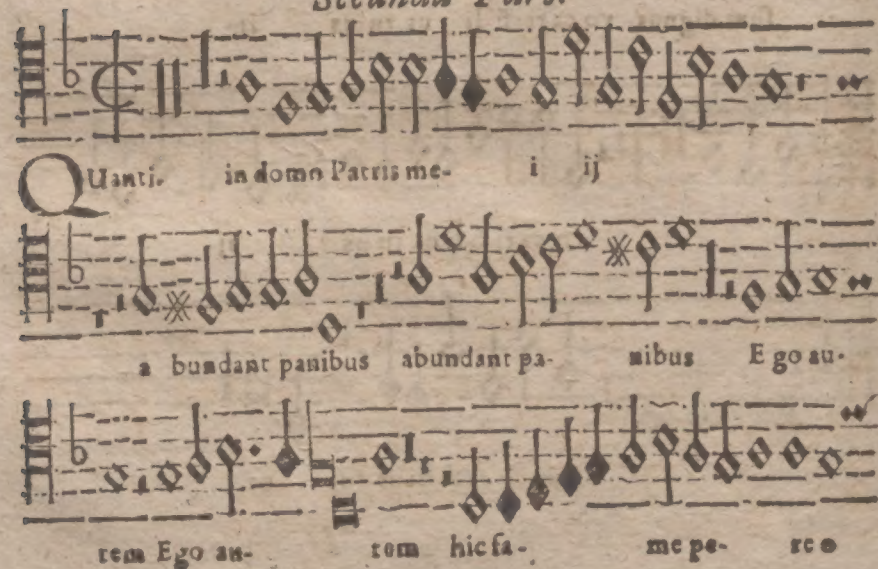 Secunda Pars.
QUanti. in domo Patris me- i ij
a bundant panibus abundant pa- nibus E go au-
tem Ego au- tem hic fa- me pe- re o